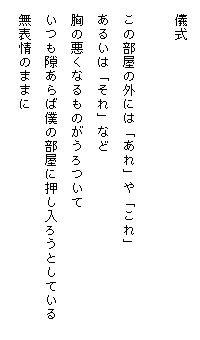 儀式
この部屋の外には「あれ」や「これ」
あるいは「それ」など
胸の悪くなるものがうろついて
いつも隙あらば僕の部屋に押し入ろうとしている
無表情のままに